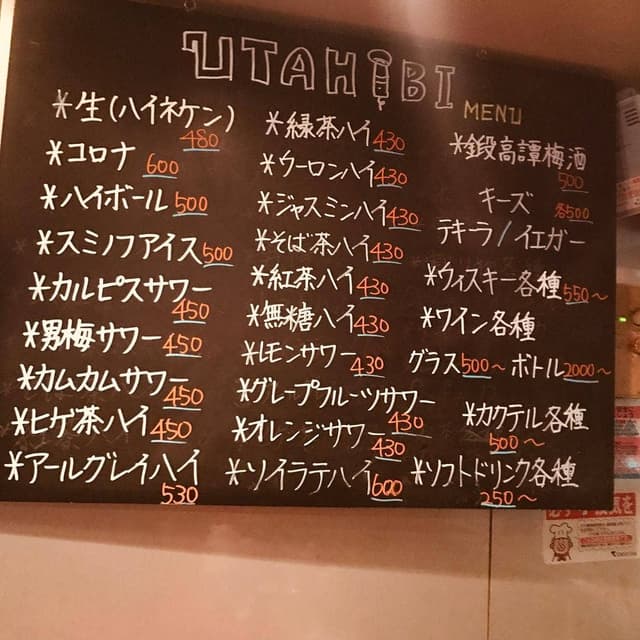 UTAHIBI
MENU
*生(ハイネケン)
480
*コロナ 600
*ハイボール 500
*スミノフアイス 500
*カルピスサワー
450
*男梅サワー 450
*カムカムサワー
450
*ヒゲ茶ハイ 450
*アールグレイハイ
530
*緑茶ハイ 430
*ウーロンハイ 430
*ジャスミンハイ 430
*そば茶ハイ 430
*紅茶ハイ 430
*無糖ハイ 430
*レモンサワー 430
*グレープフルーツサワー
430
*オレンジサワー
430
*ソイラテハイ 600
*鍛高譚梅酒
500
キーズ
各500
テキーラ/イエガー
*ウィスキー各種 550〜
*ワイン各種
グラス500〜 ボトル2000〜
*カクテル各種
500〜
*ソフトドリンク各種
250〜